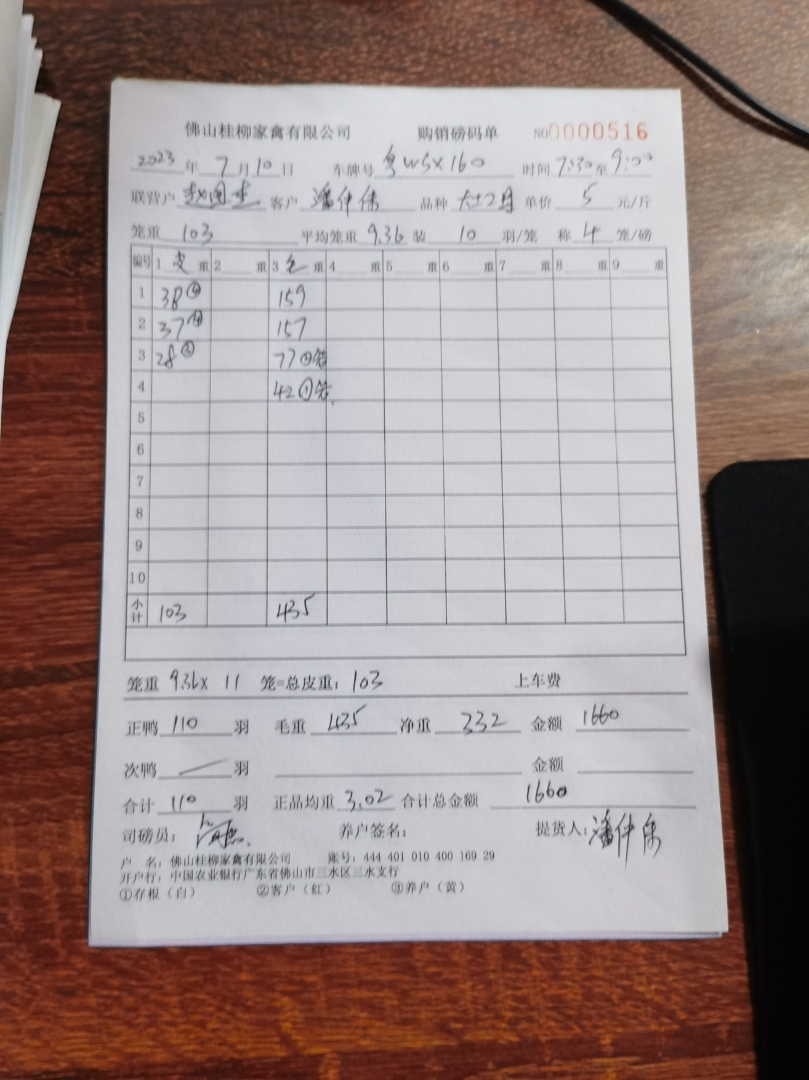 佛山桂柳家禽有限公司 购销磅码单 NO0000516
2023年7月10日 车牌号 粤W5X160 时间 7:30至9:00
联营户 客户 潘伟 品种 单价 5 元/斤
笼重 103 平均笼重 9.36 装 10 羽/笼 称 4 笼/磅
编号 1 皮 重 2 重 3 毛 重 4 重 5 重 6 重 7 重 8 重 9 重
1 38④ 159
2 37④ 157
3 28③ 77②笼
4 42①笼
5
6
7
8
9
10
小计 103 435
笼重 9.36x 11 笼=总皮重: 103 上车费
正鸭 110 羽 毛重 435 净重 332 金额 1660
次鸭 羽 金额
合计 110 羽 正品均重 3.02 合计总金额 1660
司磅员: 养户签名: 提货人: 潘伟
户 名: 佛山桂柳家禽有限公司 账号: 444 401 010 400 169 29
开户行: 中国农业银行广东省佛山市三水区三水支行
①存根（白） ②客户（红） ③养户（黄）